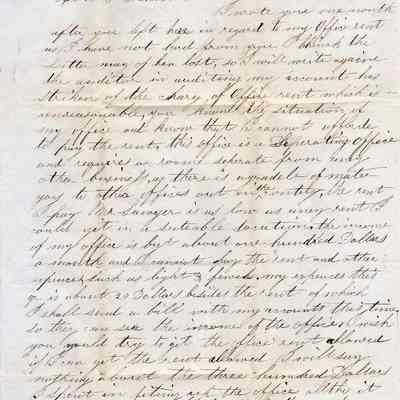 I wrote you one month
after you left here in regard to my Office rent
as I have not heard from you I think the
letter may of ben lost, so I will write again
the auditor in auditing my account has
striken of the charg of Office rent which is
unreasonable, you know the situation of
my office and know that I cannot afforde
to pay the rent, this office is a Seperating Office
and requires a room seperate from any
other business, as there is a gradele of mater
gos to other offices out in the country, the rent
I pay Mr Sawyer is as low as any rent I
could get in a suteable location, the income
of my office is but about one hundred Dollars
a month and I cannot pay the rent and other
expences such as light & fires, my expences that
is about 20 Dollars besides the rent of which
I shall send a bill with my accounts this time
so they can see the income of the office, I wish
you would try to get the office rent allowed
if I can get the rent allowed I will say
nothing about the three hundred Dollars
I spent in fiting up the office all tho it